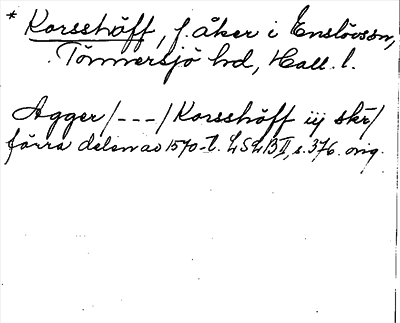 * Korsshöff, f. åker i Enslövssn,
Tönnersjö hd, Hall. l.
Agger /---/ Korsshöff iij skr/
förra delen av 1570-t. LSLB II, s. 376. orig.